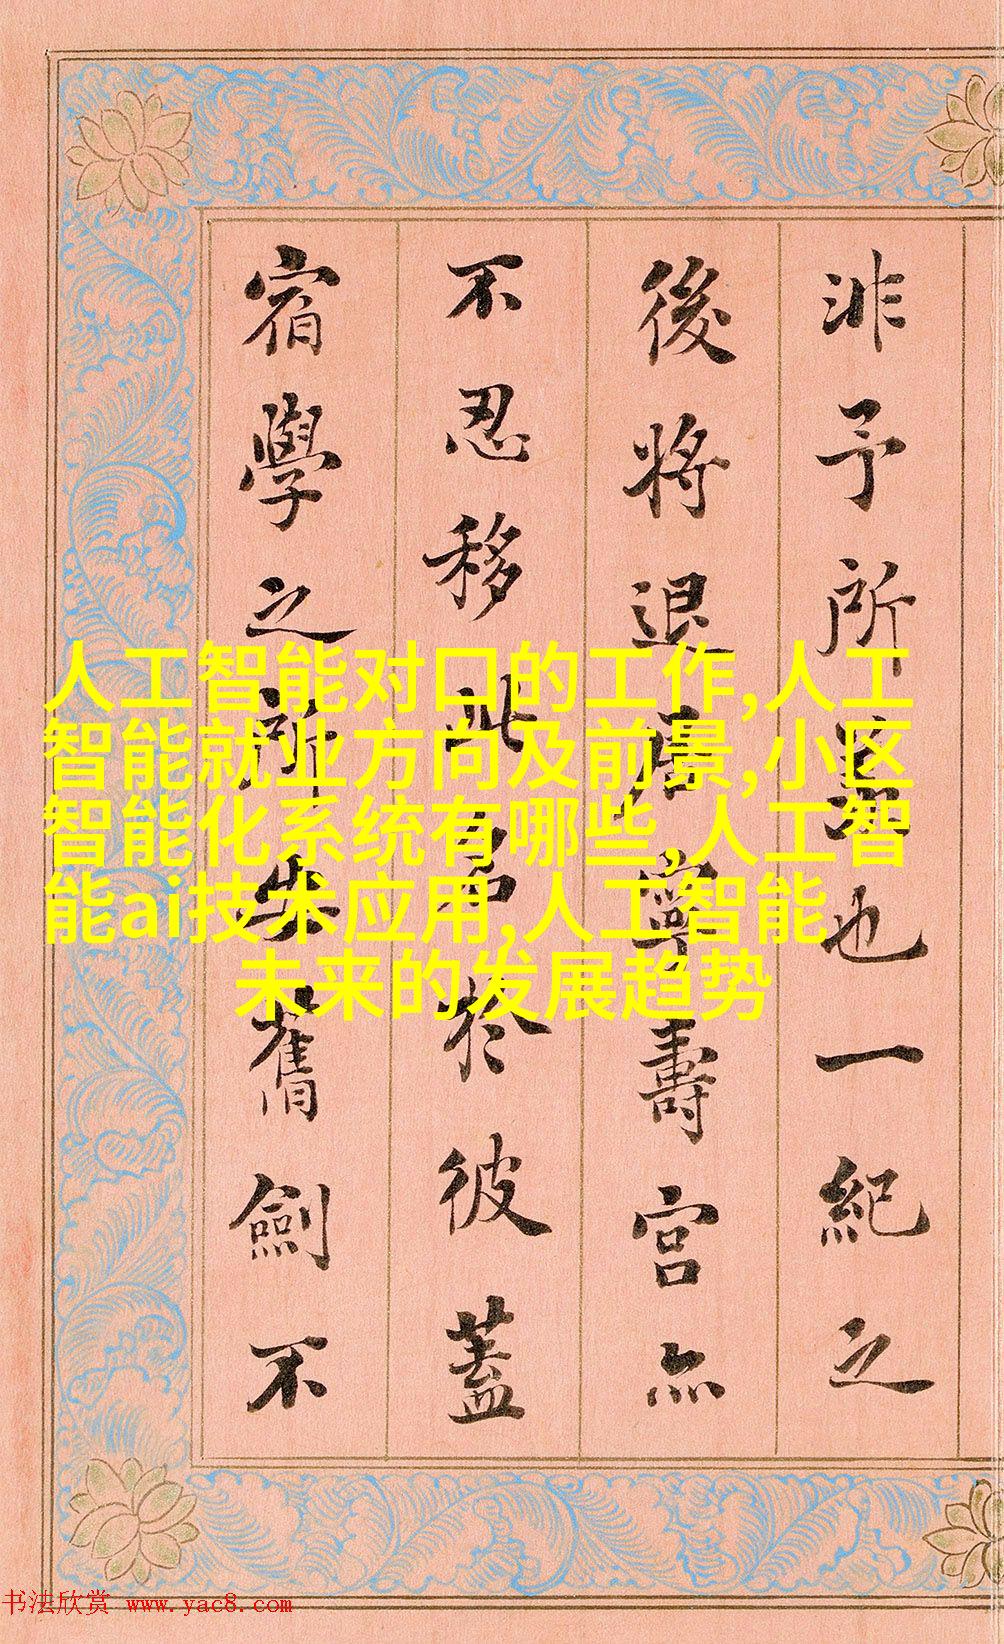 非予所也一紀之
後將退居寧壽宮亦
不忍移此名於彼蓋
宿學之所安舊劍不
人工智能对口的工作,人工
智能就业方向及前景,小区
智能化系统有哪些,人工智
能ai技术应用,人工智能
未来的发展趋势
书法欣赏 www.yac8.com